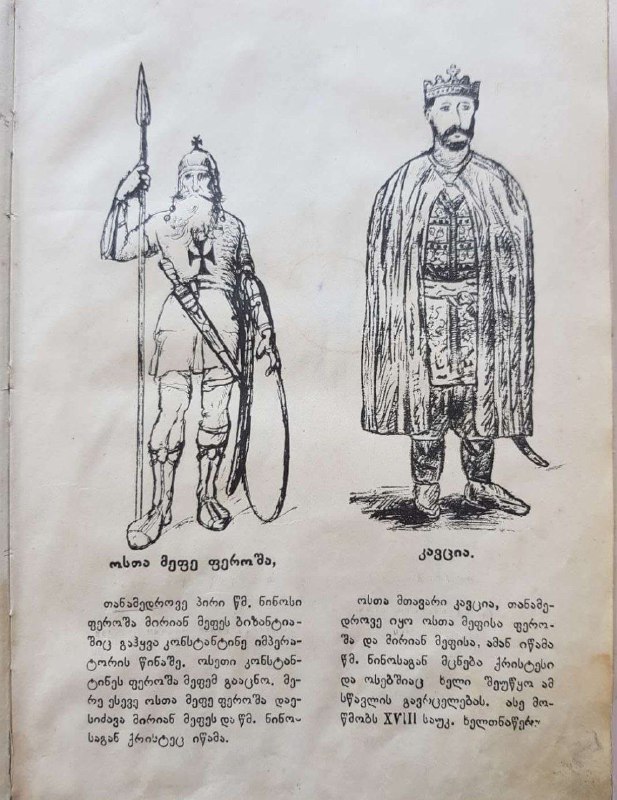 ოსთა მეფე ფეროშა,
თანამედროვე პირი წმ. ნინოსი
ფეროშა მირიან მეფეს ბიზანტია-
შიც გაჰყვა კონსტანტინე იმპერა-
ტორის წინაშე. ოსეთი კონსტან-
ტინეს ფეროშა მეფემ გააცნო. მე-
რე ესევე ოსთა მეფე ფეროშა დაე-
სიძავა მირიან მეფეს და წმ. ნინო-
საგან ქრისტეც იწამა.
კავცია.
ოსთა მთავარი კავცია, თანამე-
დროვე იყო ოსთა მეფისა ფერო-
შა და მირიან მეფისა. ამან იწამა
წმ. ნინოსაგან მცნება ქრისტესი
და ოსებშიაც ხელი შეუწყო ამ
სწავლის გავრცელებას. ასე მო-
წმობს XVIII საუკ. ხელთნაწერ